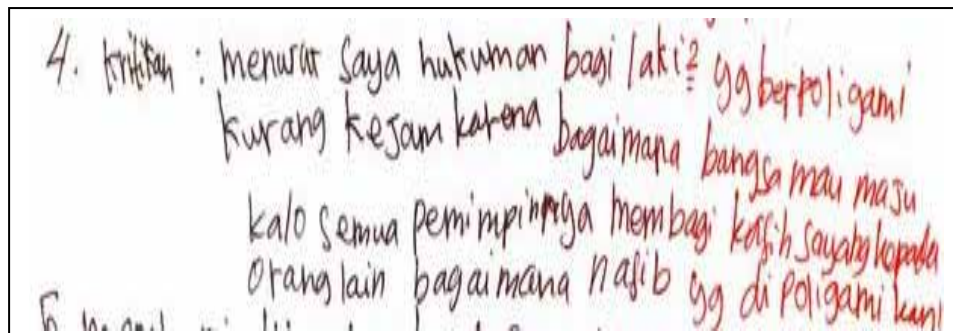 4. kritikan : menurut saya hukuman bagi laki2 yg berpoligami
kurang kejam karena bagaimana bangsa mau maju
kalo semua pemimpinnya membagi kasih sayang kepada
orang lain bagaimana nasib yg di poligami
5.